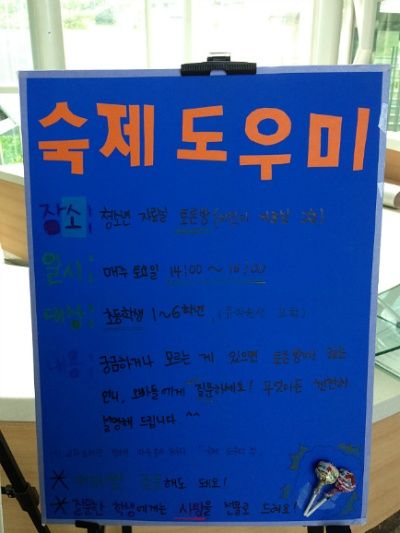 숙제 도우미
장소: 청소년 자료실 토론방 (어린이 자료실 2층)
일시: 매주 토요일 14:00 ~ 16:00
대상: 초등학생 1~6학년,
내용: 궁금하거나 모르는 게 있으면 토론방에 있는
언니, 오빠들에게 질문하세요! 무엇이든 친절히
설명해 드립니다 ^^
※ 해도 돼요!
※ 질문한 학생에게는 사탕을 선물로 드려요!